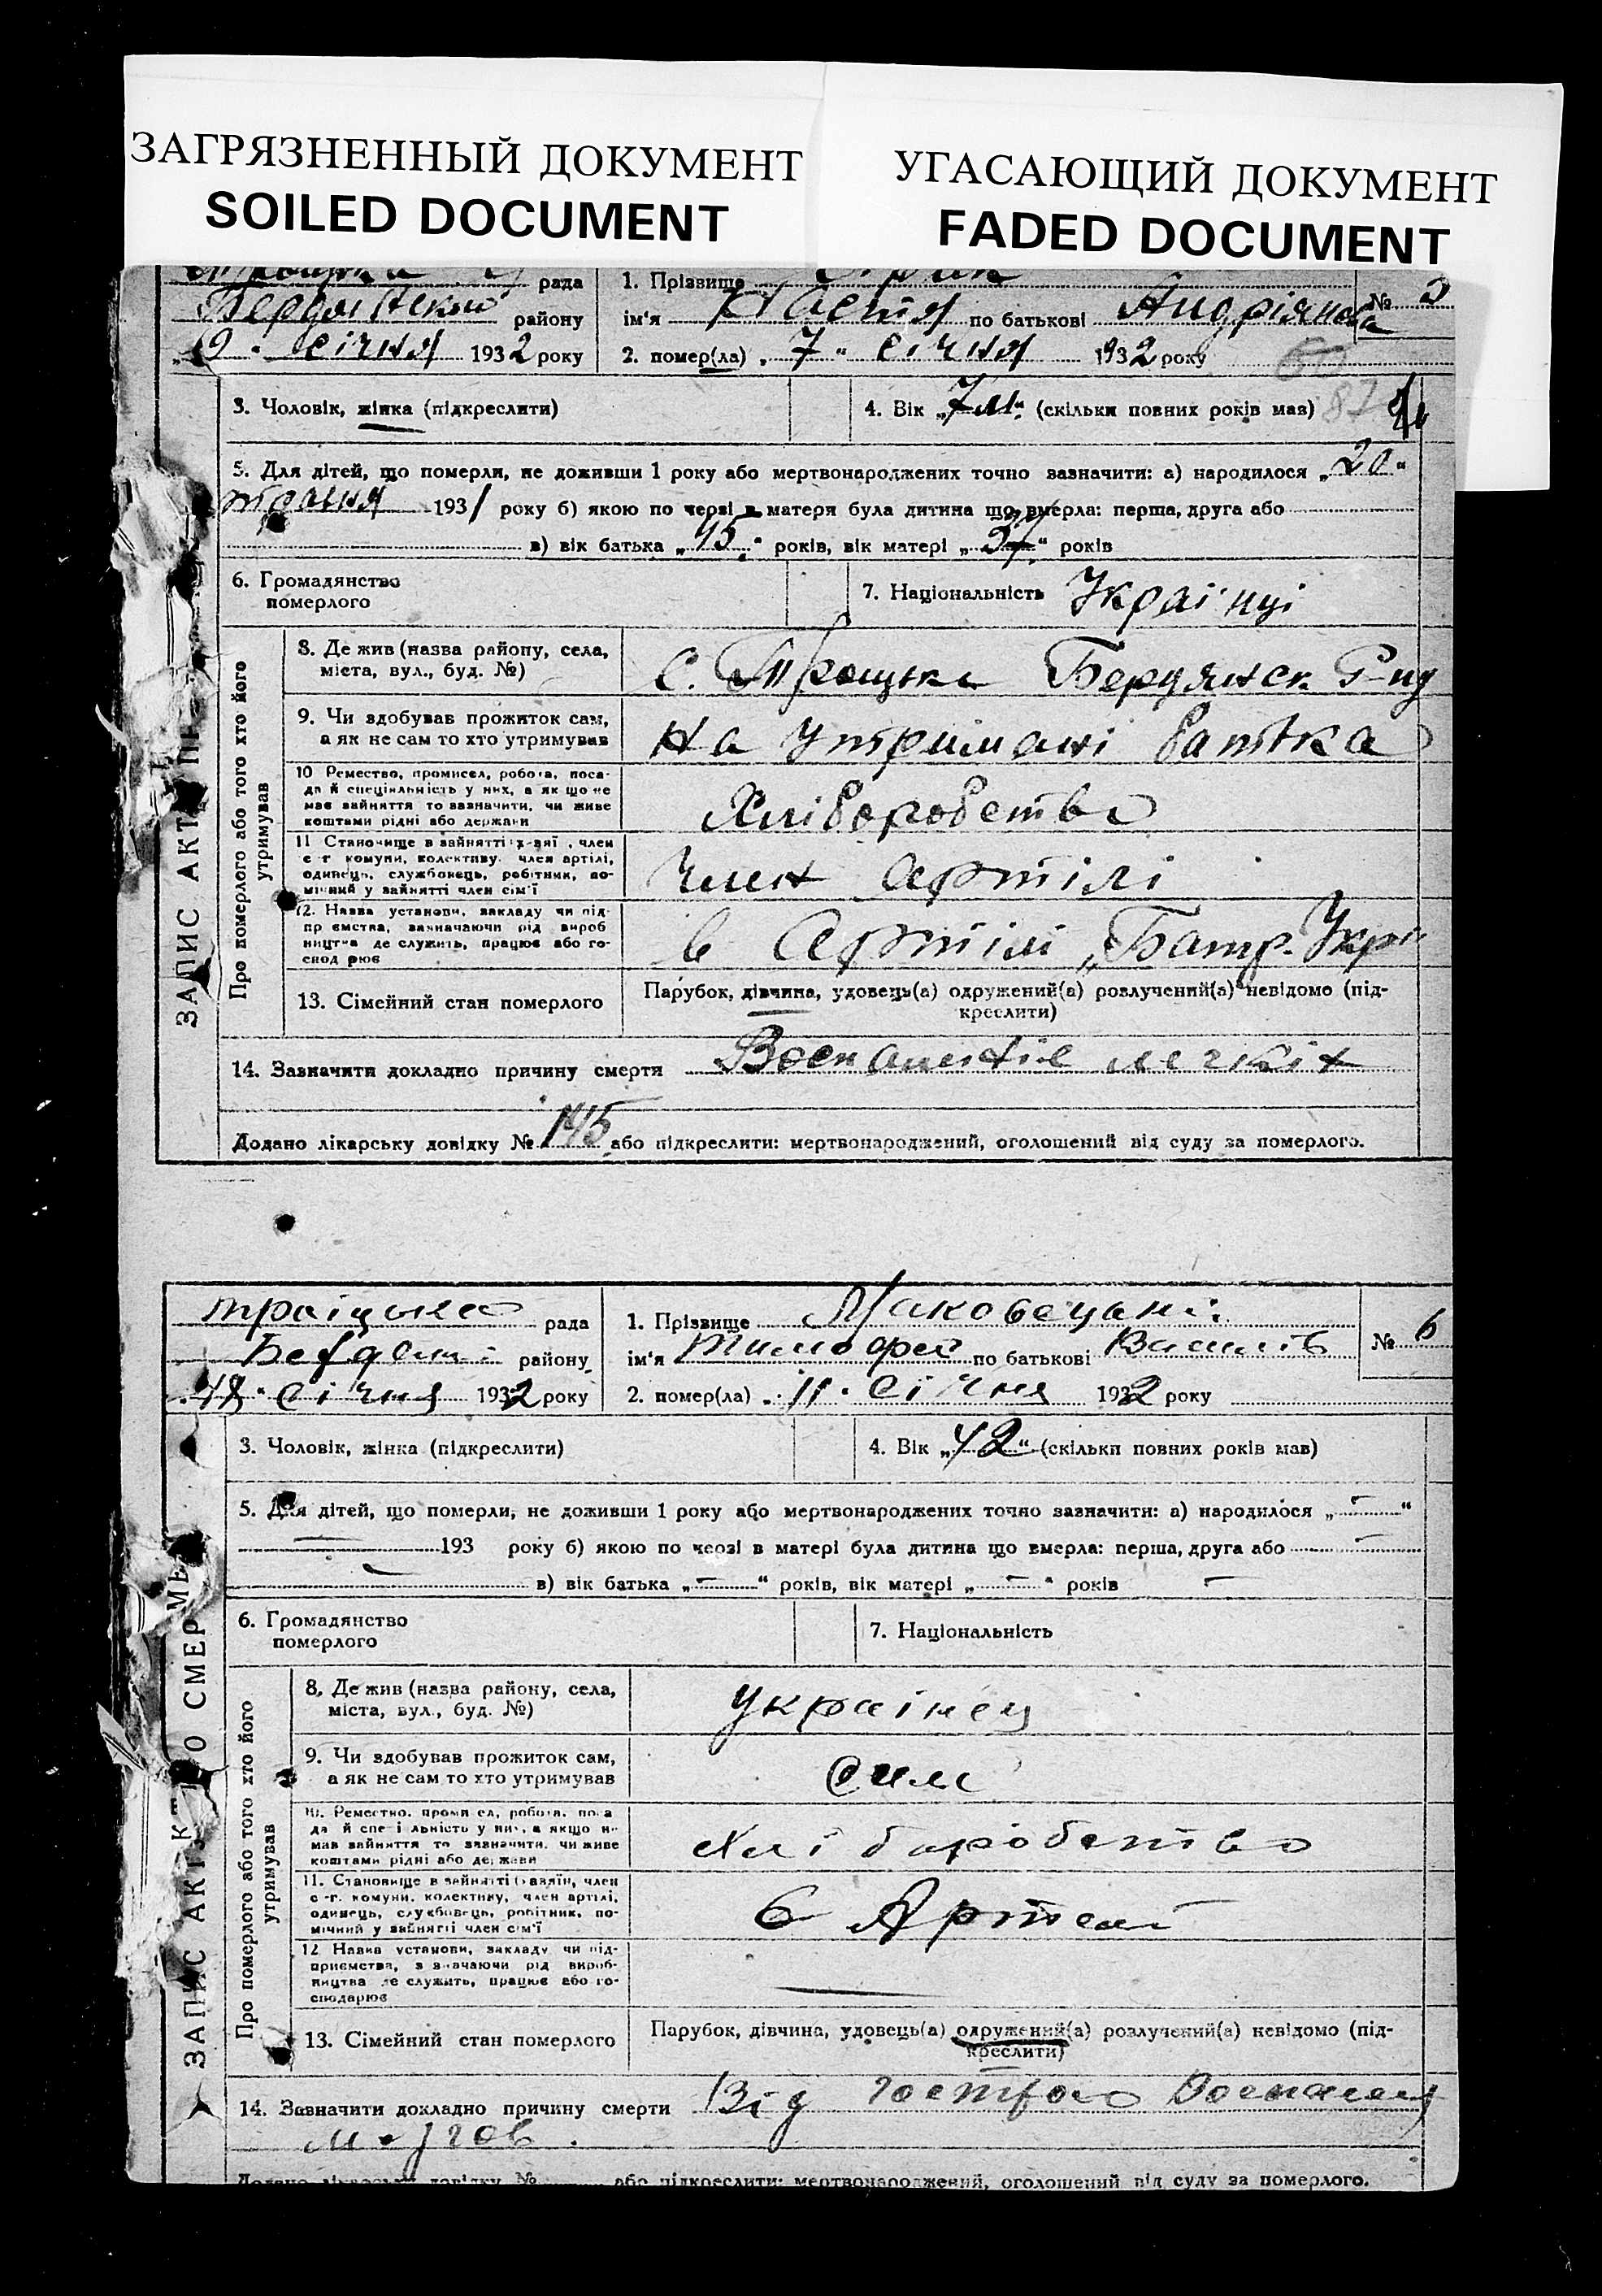 ЗАГРЯЗНЕННЫЙ ДОКУМЕНТ
SOILED DOCUMENT
УГАСАЮЩИЙ ДОКУМЕНТ
FADED DOCUMENT
рада
Бердянський району
січня 1932 року
1. Прізвище
№
ім'я Настя по батькові Андріянова
2. помер(ла) „7" січня 1932 року
3. Чоловік, жінка (підкреслити)
4. Вік „7 м." (скільки повних років мав)
5. Для дітей, що померли, не доживши 1 року або мертвонароджених точно зазначити: а) народилося „20"
травня 1931 року б) якою по черзі в матери була дитина що вмерла: перша, друга або
в) вік батька „45" років, вік матері „37" років
6. Громадянство
померлого
7. Національність Українці
Про померлого або того хто його
утримував
8. Де жив (назва району, села,
міста, вул., буд. №)
с. Троцьке Бердянск Р-ну
9. Чи здобував прожиток сам,
а як не сам то хто утримував
На утримані батька
10 Ремество, промисел, робота, поса-
да й спеціяльність у них, а як що не
мав зайняття то зазначити, чи живе
коштами рідні або держави
Хліборобство
11 Становище в зайнятті член
с-г комуни, колективу член артілі,
одинець, службовець, робітник, по-
мічний у зайнятті член сім'ї
член артілі
12. Назва установи, закладу чи під-
приємства, зазначаючи рід вироб
ництва де служить, працює або го-
сподарює
в Артілі „Батр. Укр
13. Сімейний стан померлого
Парубок, дівчина, удовець(а) одружений(а) розлучений(а) невідомо (під-
креслити)
14. Зазначити докладно причину смерти Воспаленіе легкіх
Додано лікарську довідку № 145 або підкреслити: мертвонароджений, оголошений від суду за померлого.
ЗАПИС АКТ
рада
району
січня 1932 року
1. Прізвище Маковецький
№ 6
ім'я Тимофей по батькові Василів
2. помер(ла) „11" січня 1932 року
3. Чоловік, жінка (підкреслити)
4. Вік „42" (скільки повних років мав)
5. Для дітей, що померли, не доживши 1 року або мертвонароджених точно зазначити: а) народилося „—"
193 року б) якою по черзі в матері була дитина що вмерла: перша, друга або —
в) вік батька „—" років, вік матері „—" років
6. Громадянство
померлого
7. Національність
Про померлого або того хто його
утримував
8. Де жив (назва району, села,
міста, вул., буд. №)
українец
9. Чи здобував прожиток сам,
а як не сам то хто утримував
сам
10. Ремество, промисел, робота, поса
да й спеціяльність у них, а якщо не
мав зайняття то зазначити, чи живе
коштами рідні або держави
Хліборобство
11. Становище в зайнятті хазяїн, член
с-г. комуни, колективу, член артілі,
одинець, службовець, робітник, по-
мічний у зайнятті член сім'ї
в Артелі
12 Назва установи, закладу чи під-
приємства, зазначаючи рід вироб-
ництва де служить, працює або го-
сподарює
13. Сімейний стан померлого
Парубок, дівчина, удовець(а) одружений(а) розлучений(а) невідомо (під-
креслити)
14. Зазначити докладно причину смерти Від гострого
мозгов.
Додано лікарську довідку № або підкреслити: мертвонароджений, оголошений від суду за померлого.
ЗАПИС АКТУ ПРО СМЕРТЬ